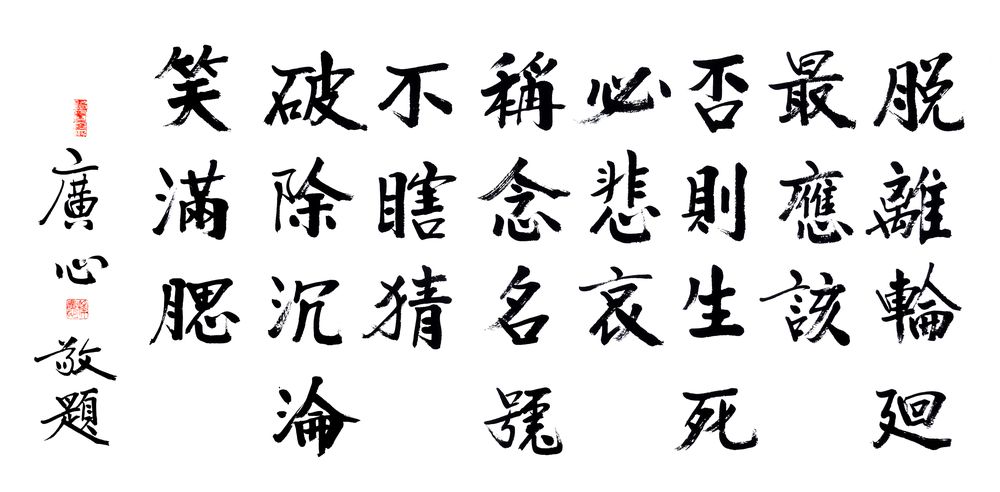 脫離輪廻
最應該
否則生死
必悲哀
稱念名號
不瞎猜
破除沉淪
笑滿腮
廣心敬題